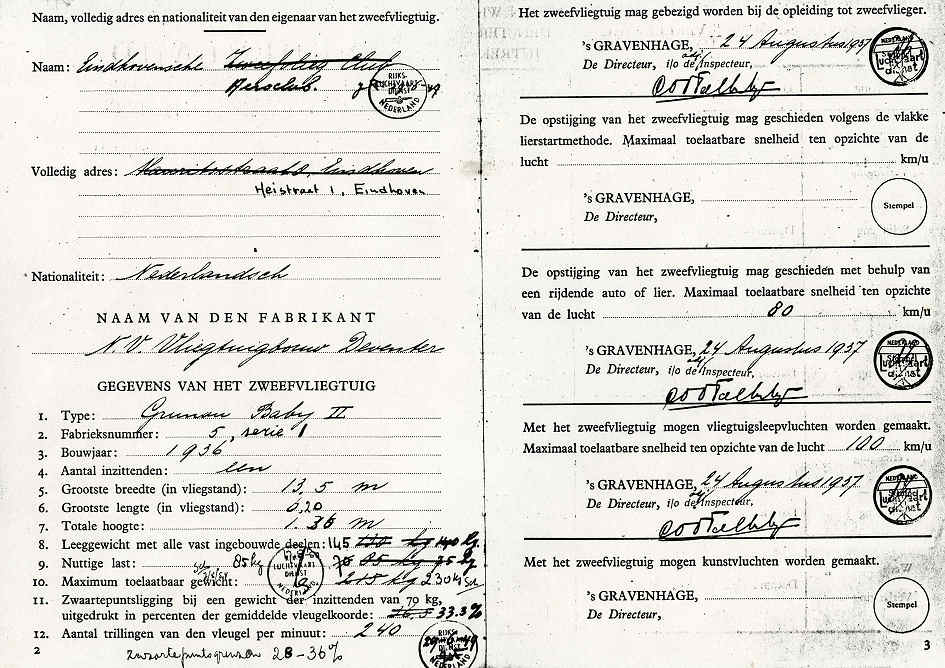 Naam, volledig adres en nationaliteit van den eigenaar van het zweefvliegtuig.
Naam: Eindhovensche Zweefvlieg Club
Aeroclub.
RIJKS-
LUCHTVAART
DIENST
NEDERLAND
Volledig adres: Eindhoven
Heistraat 1, Eindhoven
Nationaliteit: Nederlandsch
NAAM VAN DEN FABRIKANT
N.V. Vliegtuigbouw Deventer
GEGEVENS VAN HET ZWEEFVLIEGTUIG
1. Type: Grunau Baby II
2. Fabrieksnummer: 5, serie 1
3. Bouwjaar: 1936
4. Aantal inzittenden: een
5. Grootste breedte (in vliegstand): 13,5 m
6. Grootste lengte (in vliegstand): 6,20
7. Totale hoogte: 1.36 m
8. Leeggewicht met alle vast ingebouwde deelen: 145 kg 140 kg.
9. Nuttige last: 85 kg 75 kg
10. Maximum toelaatbaar gewicht: 215 kg 230 kg
LUCHTVAART
DIENST
NEDERLAND
11. Zwaartepuntsligging bij een gewicht der inzittenden van 70 kg,
uitgedrukt in percenten der gemiddelde vleugelkoorde: 33.3%
12. Aantal trillingen van den vleugel per minuut: 240
RIJKS-
2 zwaartepuntsgrenzen 28-36%
Het zweefvliegtuig mag gebezigd worden bij de opleiding tot zweefvlieger.
's GRAVENHAGE, 24 Augustus 1937
De Directeur, i/o de Inspecteur,
NEDERLAND
De opstijging van het zweefvliegtuig mag geschieden volgens de vlakke
lierstartmethode. Maximaal toelaatbare snelheid ten opzichte van de
lucht km/u
's GRAVENHAGE,
De Directeur,
Stempel
De opstijging van het zweefvliegtuig mag geschieden met behulp van
een rijdende auto of lier. Maximaal toelaatbare snelheid ten opzichte
van de lucht 80 km/u
's GRAVENHAGE, 24 Augustus 1937
De Directeur, i/o de Inspecteur,
NEDERLAND
Met het zweefvliegtuig mogen vliegtuigsleepvluchten worden gemaakt.
Maximaal toelaatbare snelheid ten opzichte van de lucht 100 km/u
's GRAVENHAGE, 24 Augustus 1937
De Directeur, i/o de Inspecteur,
NEDERLAND
Met het zweefvliegtuig mogen kunstvluchten worden gemaakt.
's GRAVENHAGE,
De Directeur,
Stempel
3